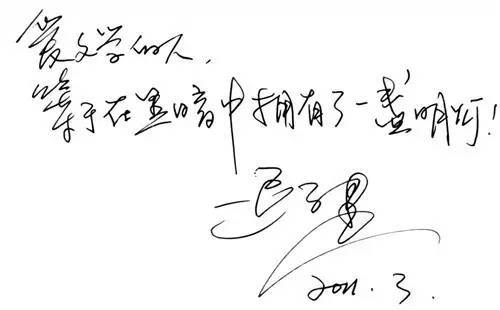 爱文学的人,
等于在黑暗中拥有了一盏明灯!
2011.3.